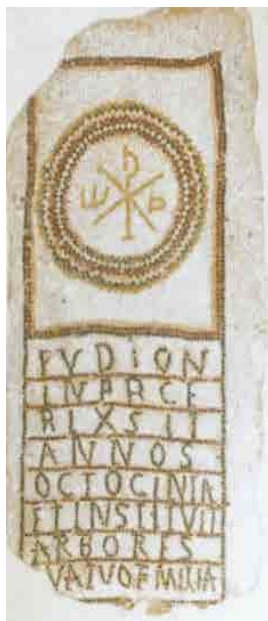 ω ⳩ A
FVDION
INPACE
BIXSIT
ANNOS
OCTOCINTA
ETINSTITVIT
ARBORES
VATVORMILIA